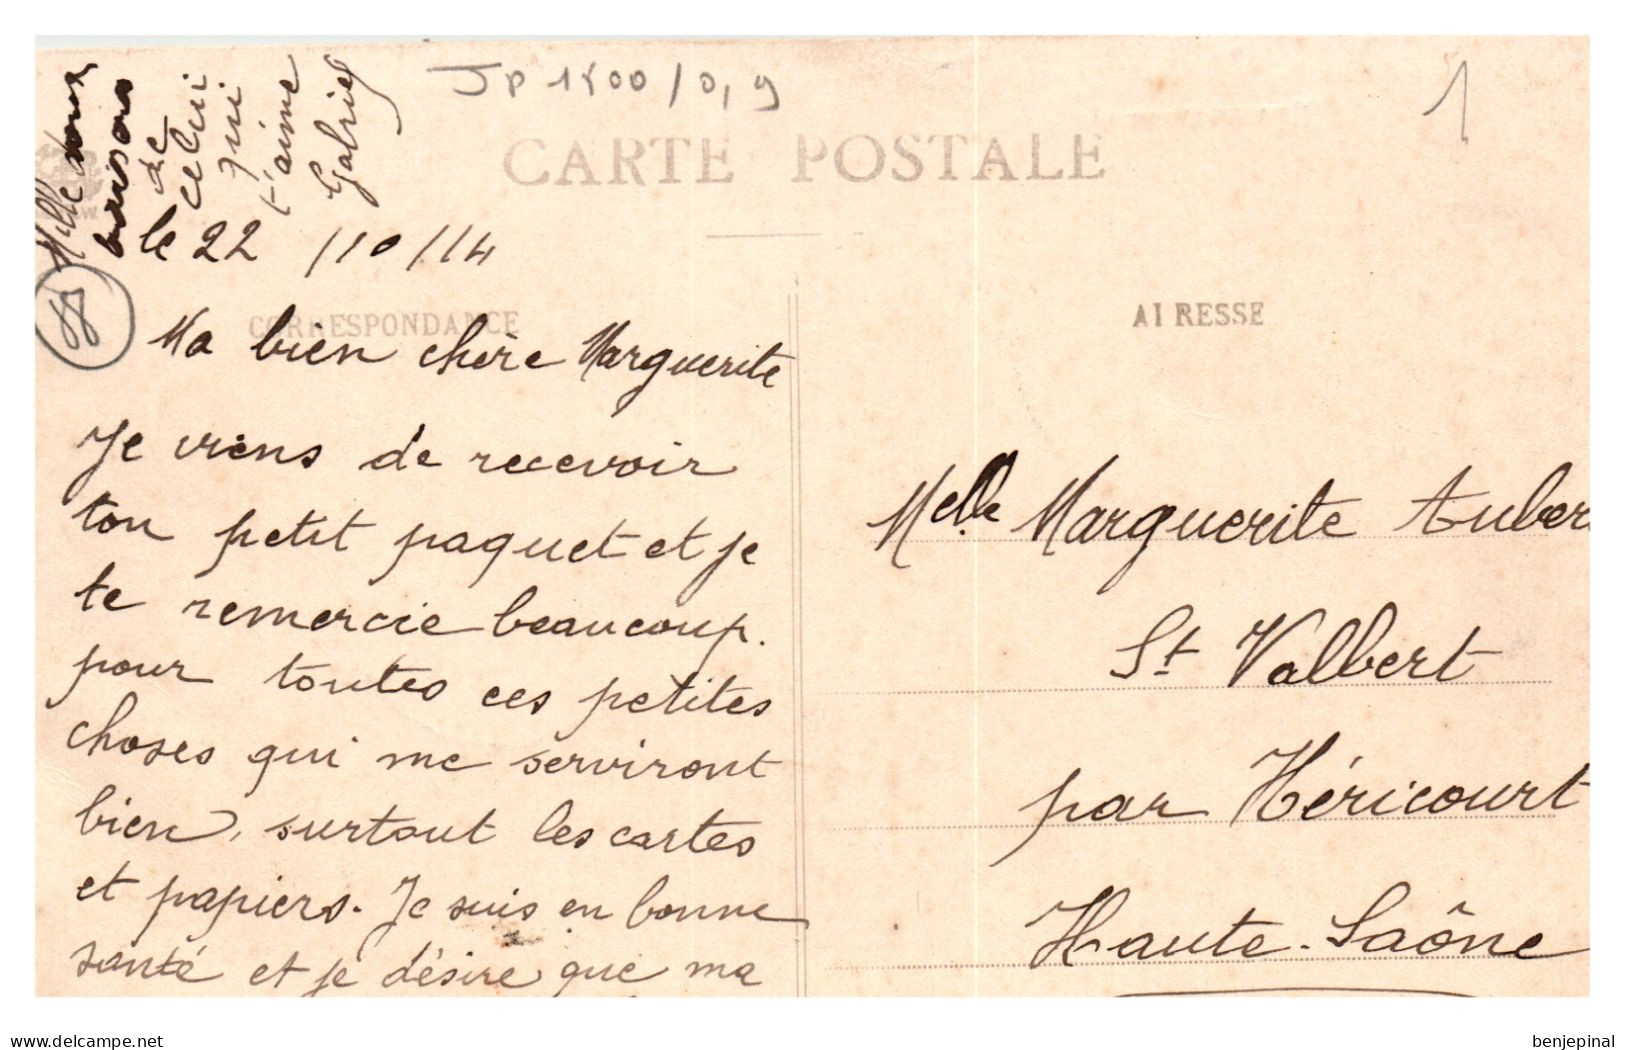 Mille doux
baisers
de
celui
qui
t'aime
Gabriel
JP 1800/0,9
1
CARTE POSTALE
le 22 /10/14
CORRESPONDANCE
Ma bien chère Marguerite
Je viens de recevoir
ton petit paquet et je
te remercie beaucoup.
pour toutes ces petites
choses qui me serviront
bien, surtout les cartes
et papiers. Je suis en bonne
santé et je désire que ma
AIRESSE
Melle Marguerite Auber
St Valbert
par Héricourt
Haute-Saône
www.delcampe.net
benjepinal